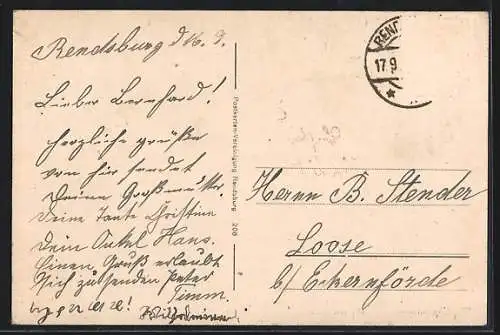 Rendsburg d 16. 9.
Lieber Bernhard!
Herzliche Grüße
von hir sendet
Deine Großmutter
Deine Tante Christine
Dein Onkel Hans.
Einen Gruß erlaubt
sich zu senden Peter
Timm.
Wilhelmine
Postkarten-Vereinigung Rendsburg 209
REND
17.9
Herrn B. Stender
Loose
b/ Eckernförde